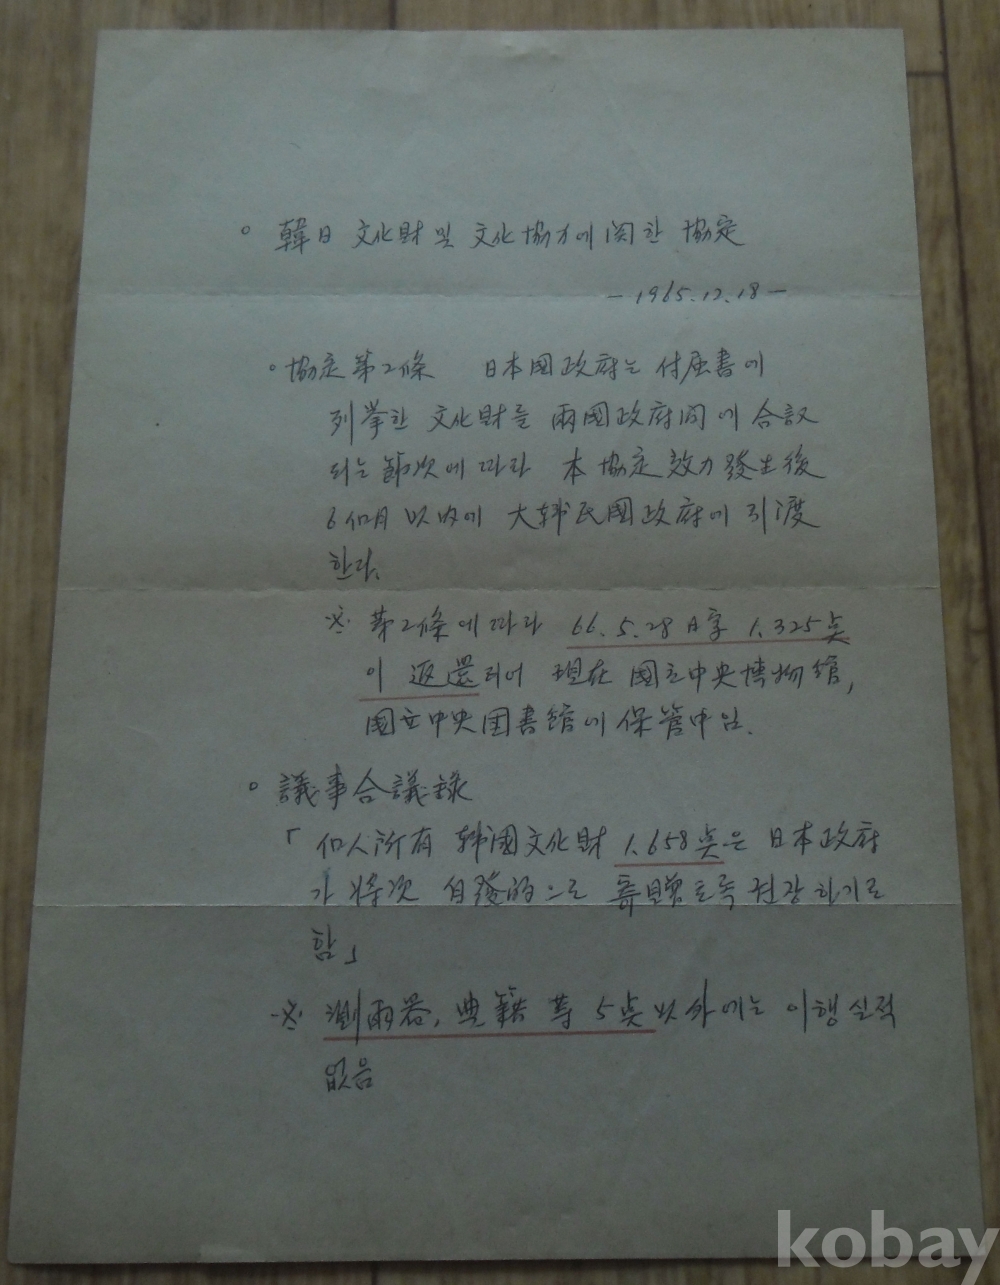 ○ 韓日 文化財 및 文化協力에 関한 協定
- 1965. 12. 18 -
○ 協定第2條 日本國政府는 付屬書에
列挙한 文化財를 兩國政府間에 合議
되는 節次에 따라 本 協定 效力 發生後
6個月 以內에 大韓民國政府에 引渡
한다.
※ 第2條에 따라 66. 5. 28 日字 1.325点
이 返還되어 現在 國立中央博物館,
國立中央図書館에 保管中임.
○ 議事合議錄
「個人所有 韓國文化財 1.658点은 日本政府
가 將次 自發的으로 寄贈토록 권장하기로
함」
※ 測雨器, 典籍 等 5点 以外에는 이행실적
없음
kobay